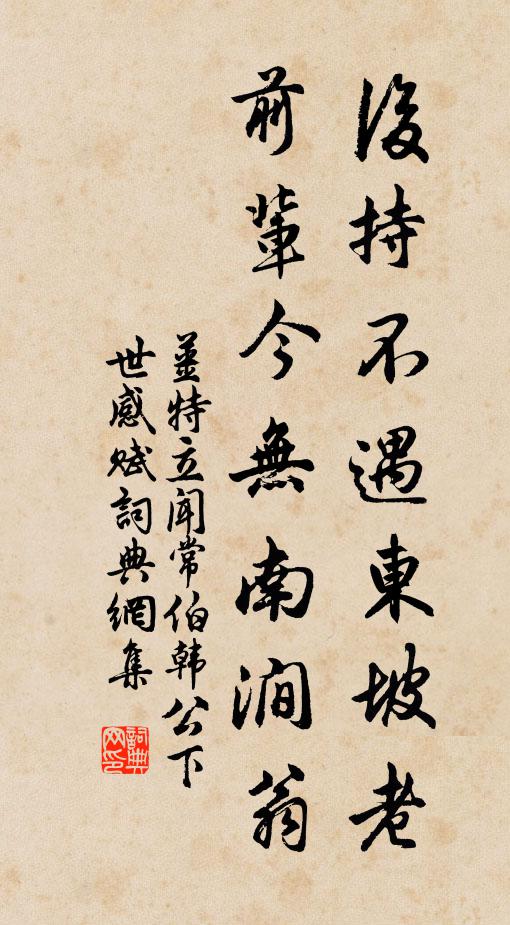 後持不遇東坡老
前輩今無南澗翁
薑特立聞常伯韓公下
世感賦詞典網集
詞典网印